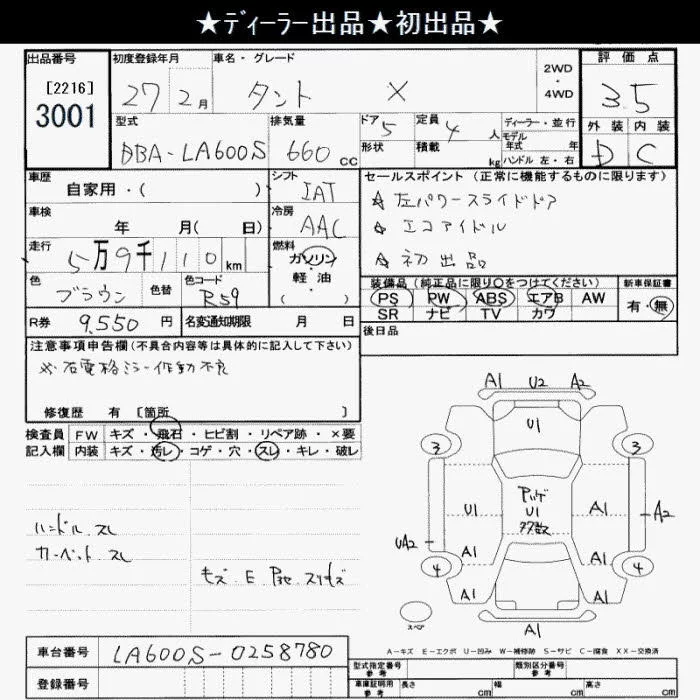 ★ディーラー出品★初出品★
出品番号 初度登録年月 車名・グレード 評価点
[2216]
3001
27年 2月 タント X 2WD・4WD 3.5
型式 排気量 ドア 5 定員 4人 ディーラー・並行 外装 内装
DBA-LA600S 660cc 形状 積載 kg モデル年式 年 ハンドル 左・右 D C
車歴 自家用・( ) シフト IAT セールスポイント (正常に機能するものに限ります)
☆ 左パワースライドドア
車検 年 月( 日) 冷房 AAC ☆ エコアイドル
走行 5万9千110km 燃料 ガソリン・軽油・( ) ☆ 初出品
色 ブラウン 色替 色コード R59 装備品 (純正品に限り○をつけてください) 新車保証書
PS PW ABS エアB AW 有・無
SR ナビ TV カワ
R券 9,550円 名変通知期限 月 日 後日品
注意事項申告欄(不具合内容等は具体的に記入して下さい)
※右電格ミラー作動不良
修復歴 有 [箇所 ]
検査員 FW キズ・飛石・ヒビ割・リペア跡・×要
記入欄 内装 キズ・汚レ・コゲ・穴・スレ・キレ・破レ
ハンドル スレ
カーペット スレ
A1 U2 A2
U1
3 3
U1 U1 A1 A2
多数
UA2 A1 A1
4 4
A1 A1
A1
スペア
A－キズ E－エクボ U－凹み W－補修跡 S－サビ C－腐食 XX－交換済
車台番号 LA600S-0258780
登録番号
型式指定番号 参考 類別区分番号 参考
車庫証明用 参考 長さ cm 幅 cm 高さ cm